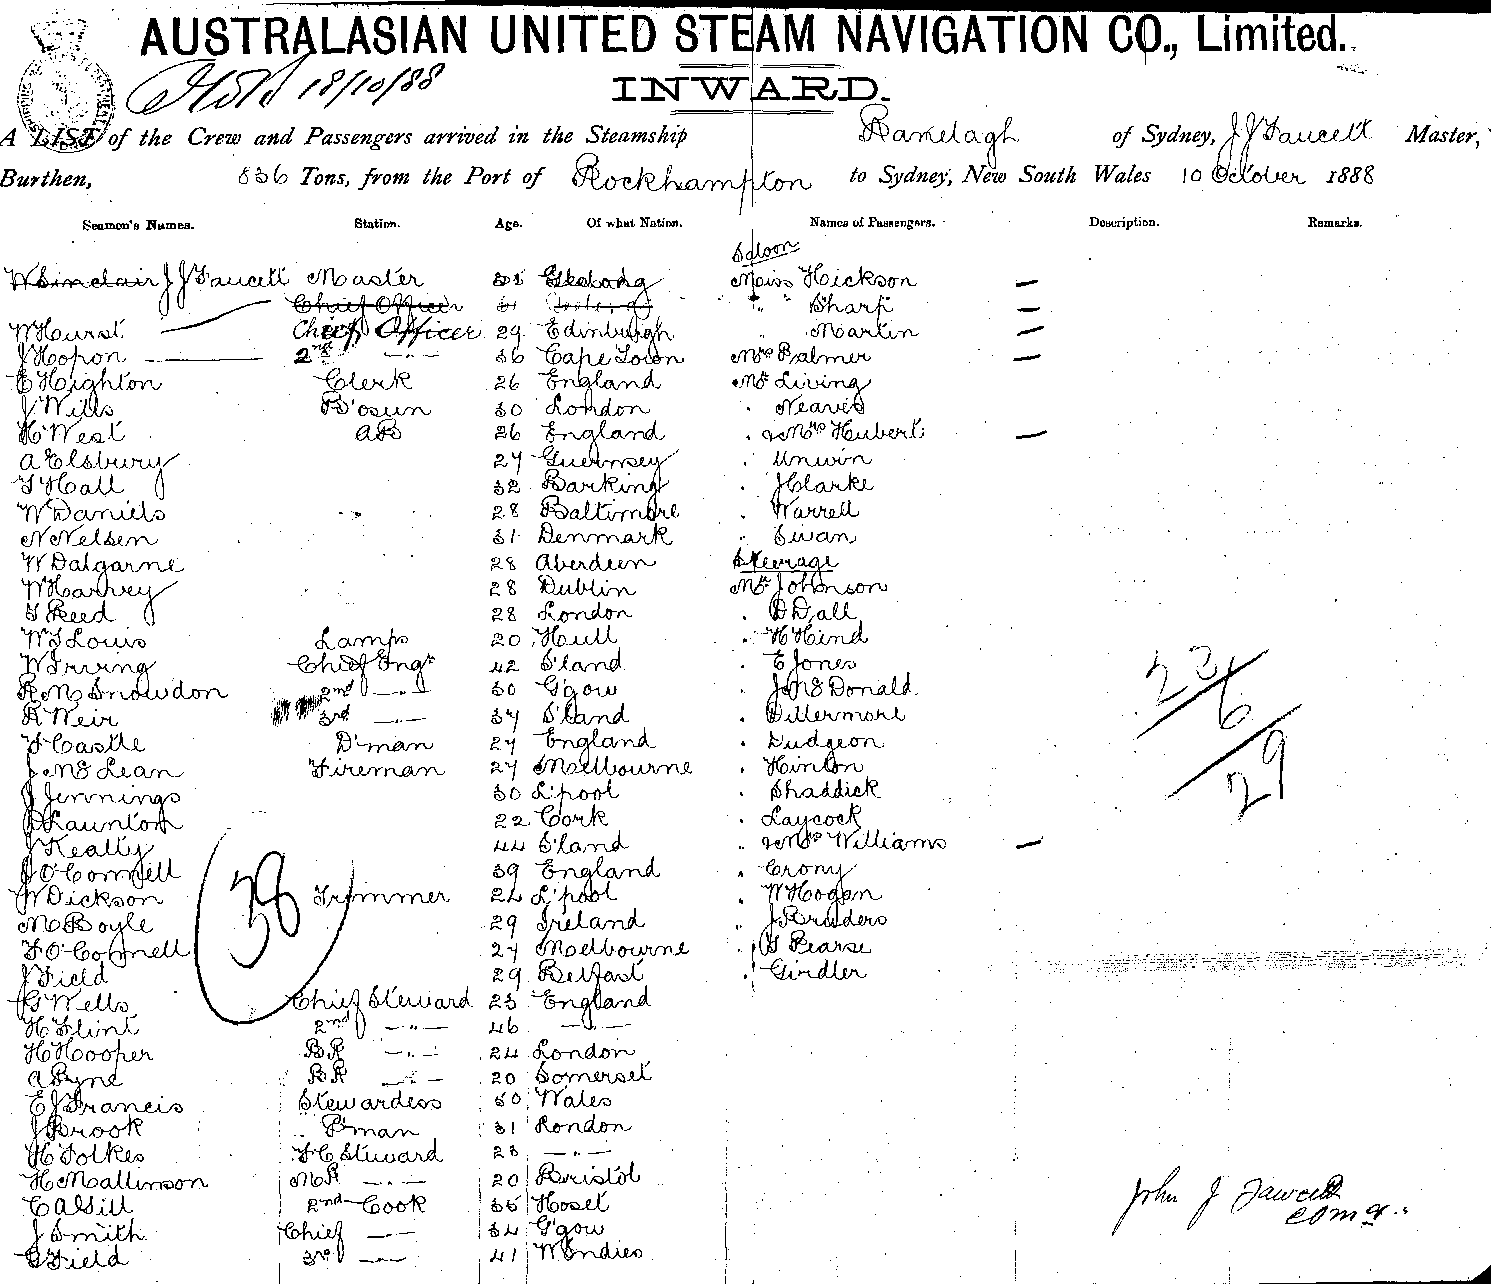 AUSTRALASIAN UNITED STEAM NAVIGATION CO., Limited.
18/10/88
INWARD.
A LIST of the Crew and Passengers arrived in the Steamship Ranelagh of Sydney, J J Faucett Master,
Burthen, 836 Tons, from the Port of Rockhampton to Sydney, New South Wales 10 October 1888
Seamen's Names. Station. Age. Of what Nation. Names of Passengers. Description. Remarks.
Saloon
W Sinclair J J Faucett Master Miss Hickson —
Chief Officer 31 " " Sharp —
W Hurst Chief Officer 29 Edinburgh " Martin —
J Hopon 2nd —"— 36 Cape Town Mrs Palmer —
E Highton Clerk 26 England Mr Living
J Wills B'osun 30 London " Neaves
H West AB 26 England " & Mrs Hubert —
A Elsbury 27 Guernsey " Unwin
T Hall 32 Barking " J Clarke
W Daniels " 28 Baltimore " Warrell
N Nelsen 31 Denmark " Swan
W Dalgarne 28 Aberdeen Steerage
W Harvey 28 Dublin Mr Johnson
T Reed 28 London " D Dall
W T Louis Lamps 20 Hull " H Hind
W Irving Chief Engr 42 S'land " E Jones
R McSnowdon 2nd —"— 30 G'gow " J McDonald
R Weir 3rd —"— 37 S'land " Dillermore
F Castle D'man 27 England " Dudgeon
J McLean Fireman 27 Melbourne " Hinton
J Jennings 30 L'pool " Shaddick
Launton 22 Cork " Laycock
J Kealty 44 S'land " & Mrs Williams —
J O'Connell 39 England " Crony
W Dickson Trimmer 24 L'pool " W Hogan
M Boyle 29 Ireland " J Bruders
F O'Connell 27 Melbourne " G Pearse
J Field 29 Belfast " Girdler
G Wells Chief Steward 23 England
H Flint 2nd —"— 46 —"—
H Hooper BR —"— 24 London
A Pyne BR —"— 20 Somerset
E J Francis Stewardess 30 Wales
J Brook P'man 31 London
H Folkes F C Steward 23 —"—
H Mallinson MR —"— 20 Bristol
C A Gill 2nd Cook 35
J Smith Chief —"— 34 G'gow
G Field 3rd —"— 41
38
23
6
29
John J Fawcett
Comdr